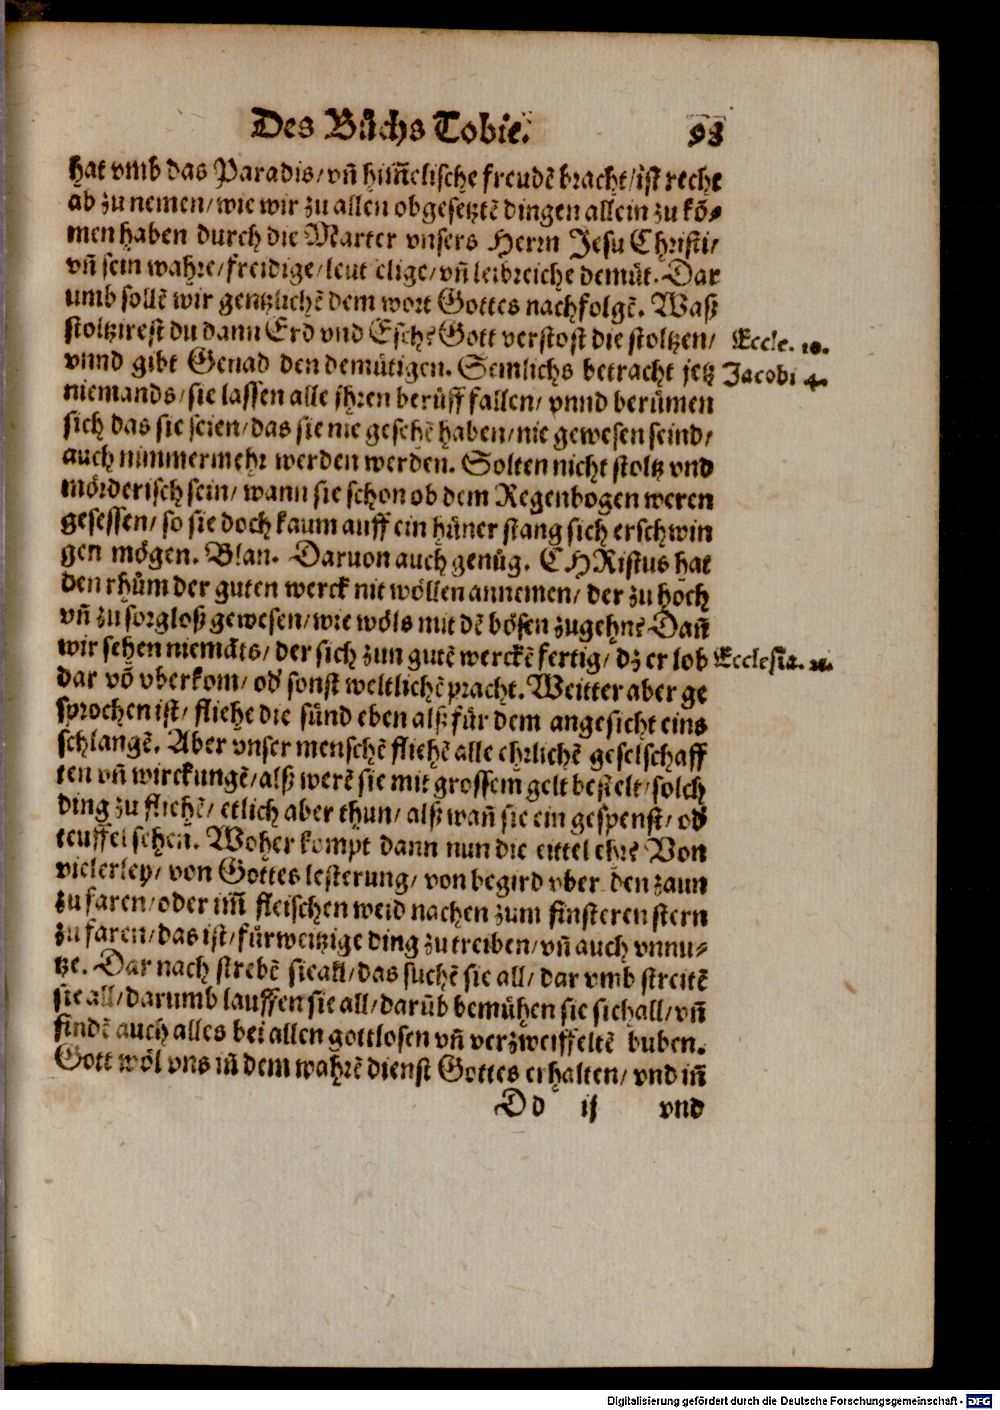 Des Bůchs Tobie. 98
hat vmb das Paradis/ vñ him̃elische freudẽ bracht/ ist recht
ab zu nemen/ wie wir zu allen obgesetztẽ dingen allein zu kõ-
men haben durch die Marter vnsers Herrn Jesu Christi/
vñ sein wahre/ freidige/ leut elige/ vñ leibreiche demůt. Dar
umb sollẽ wir gentzlichẽ dem wort Gottes nachfolgẽ. Waß
stoltzirest du dann Erd vnd Esch? Gott verstost die stoltzen/ Eccle. 10.
vnnd gibt Genad den demůtigen. Semlichs betracht jetz Jacobi 4.
niemands/ sie lassen alle jhren berůff fallen/ vnnd berůmen
sich das sie seien/ das sie nie gesehẽ haben/ nie gewesen seind/
auch nimmermehr werden werden. Solten nicht stoltz vnd
mörderisch sein/ wann sie schon ob dem Regenbogen weren
gesessen/ so sie doch kaum auff ein hůner stang sich erschwin
gen mögen. Blan. Daruon auch genůg. CHRistus hat
den rhům der guten werck nit wöllen annemen/ der zu hoch
vñ zu sorgloß gewesen/ wie wöls mit dẽ bösen zugehn? Dañ
wir sehen niemãts/ der sich zun gutẽ werckẽ fertig/ dz er lob Ecclesia.
dar võ vberkom/ od' sonst weltlichẽ pracht. Weitter aber ge
sprochen ist/ fliehe die sünd eben alß für dem angesicht eins
schlangẽ. Aber vnser menschẽ fliehẽ alle ehrlichẽ geselschaff
ten vñ wirckungẽ/ alß werẽ sie mit grossem gelt bestelt/ solch
ding zu fliehẽ/ etlich aber thun/ alß wañ sie ein gespenst/ od'
teuffel sehen. Woher kompt dann nun die eittel ehr? Von
vielerley/ von Gottes lesterung/ von begird vber den zaun
zu faren/ oder im̃ fleischen weid nachen zum finsteren stern
zu faren/ das ist/ fürweitzige ding zu treiben/ vñ auch vnnu-
tze. Dar nach strebẽ sie all/ das suchẽ sie all/ dar vmb streitẽ
sie all/ darumb lauffen sie all/ darũb bemühen sie sich all/ vñ
findẽ auch alles bei allen gottlosen vñ verzweiffeltẽ buben.
Gott wöl vns in dem wahrẽ dienst Gottes erhalten/ vnd iñ
Dd ij vnd
Digitalisierung gefördert durch die Deutsche Forschungsgemeinschaft - DFG